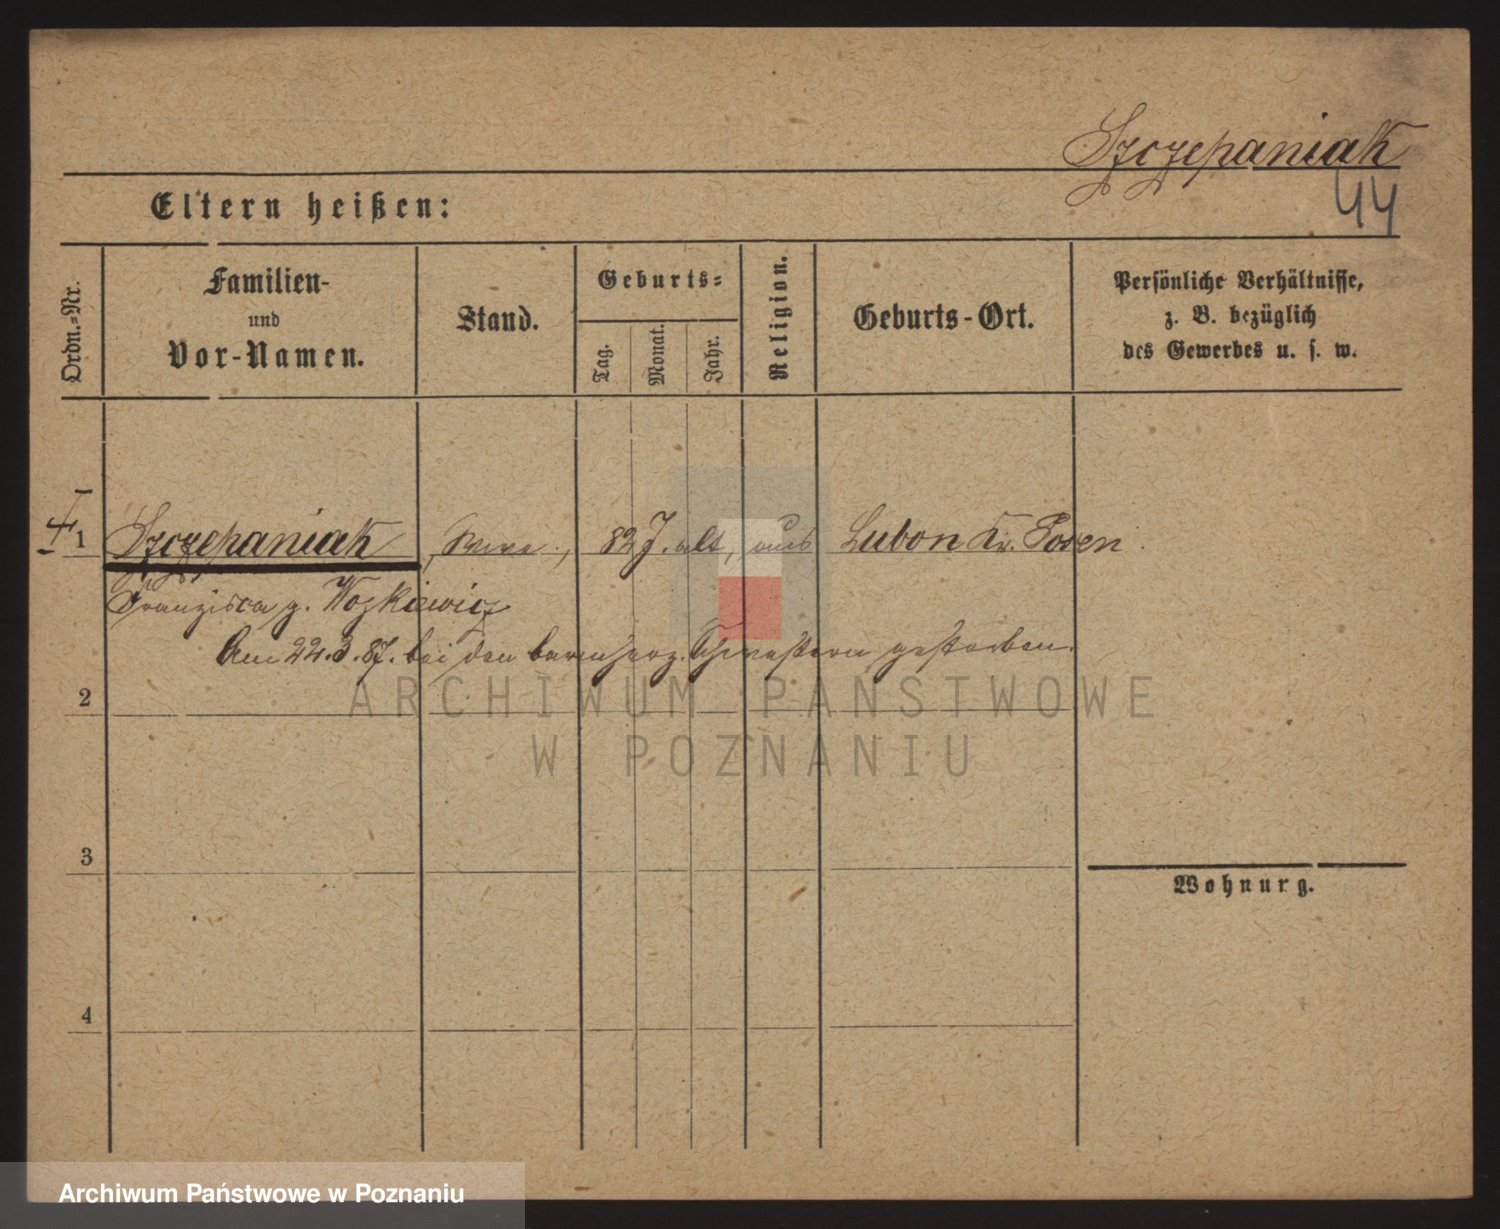 Szczepaniak
44
Eltern heißen:
Ordn.=Nr.
Familien-
und
Vor-Namen.
Stand.
Geburts=
Tag.
Monat.
Jahr.
Religion.
Geburts-Ort.
Persönliche Verhältnisse,
z. B. bezüglich
des Gewerbes u. s. w.
1 Szczepaniak, Wwe., 82 J. alt, aus Lubon Kr. Posen.
Franzisca g. Wozkiewicz
Am 22.3.87. bei den barmherz. Schwestern gestorben.
2
ARCHIWUM PAŃSTWOWE
W POZNANIU
3
Wohnung.
4
Archiwum Państwowe w Poznaniu